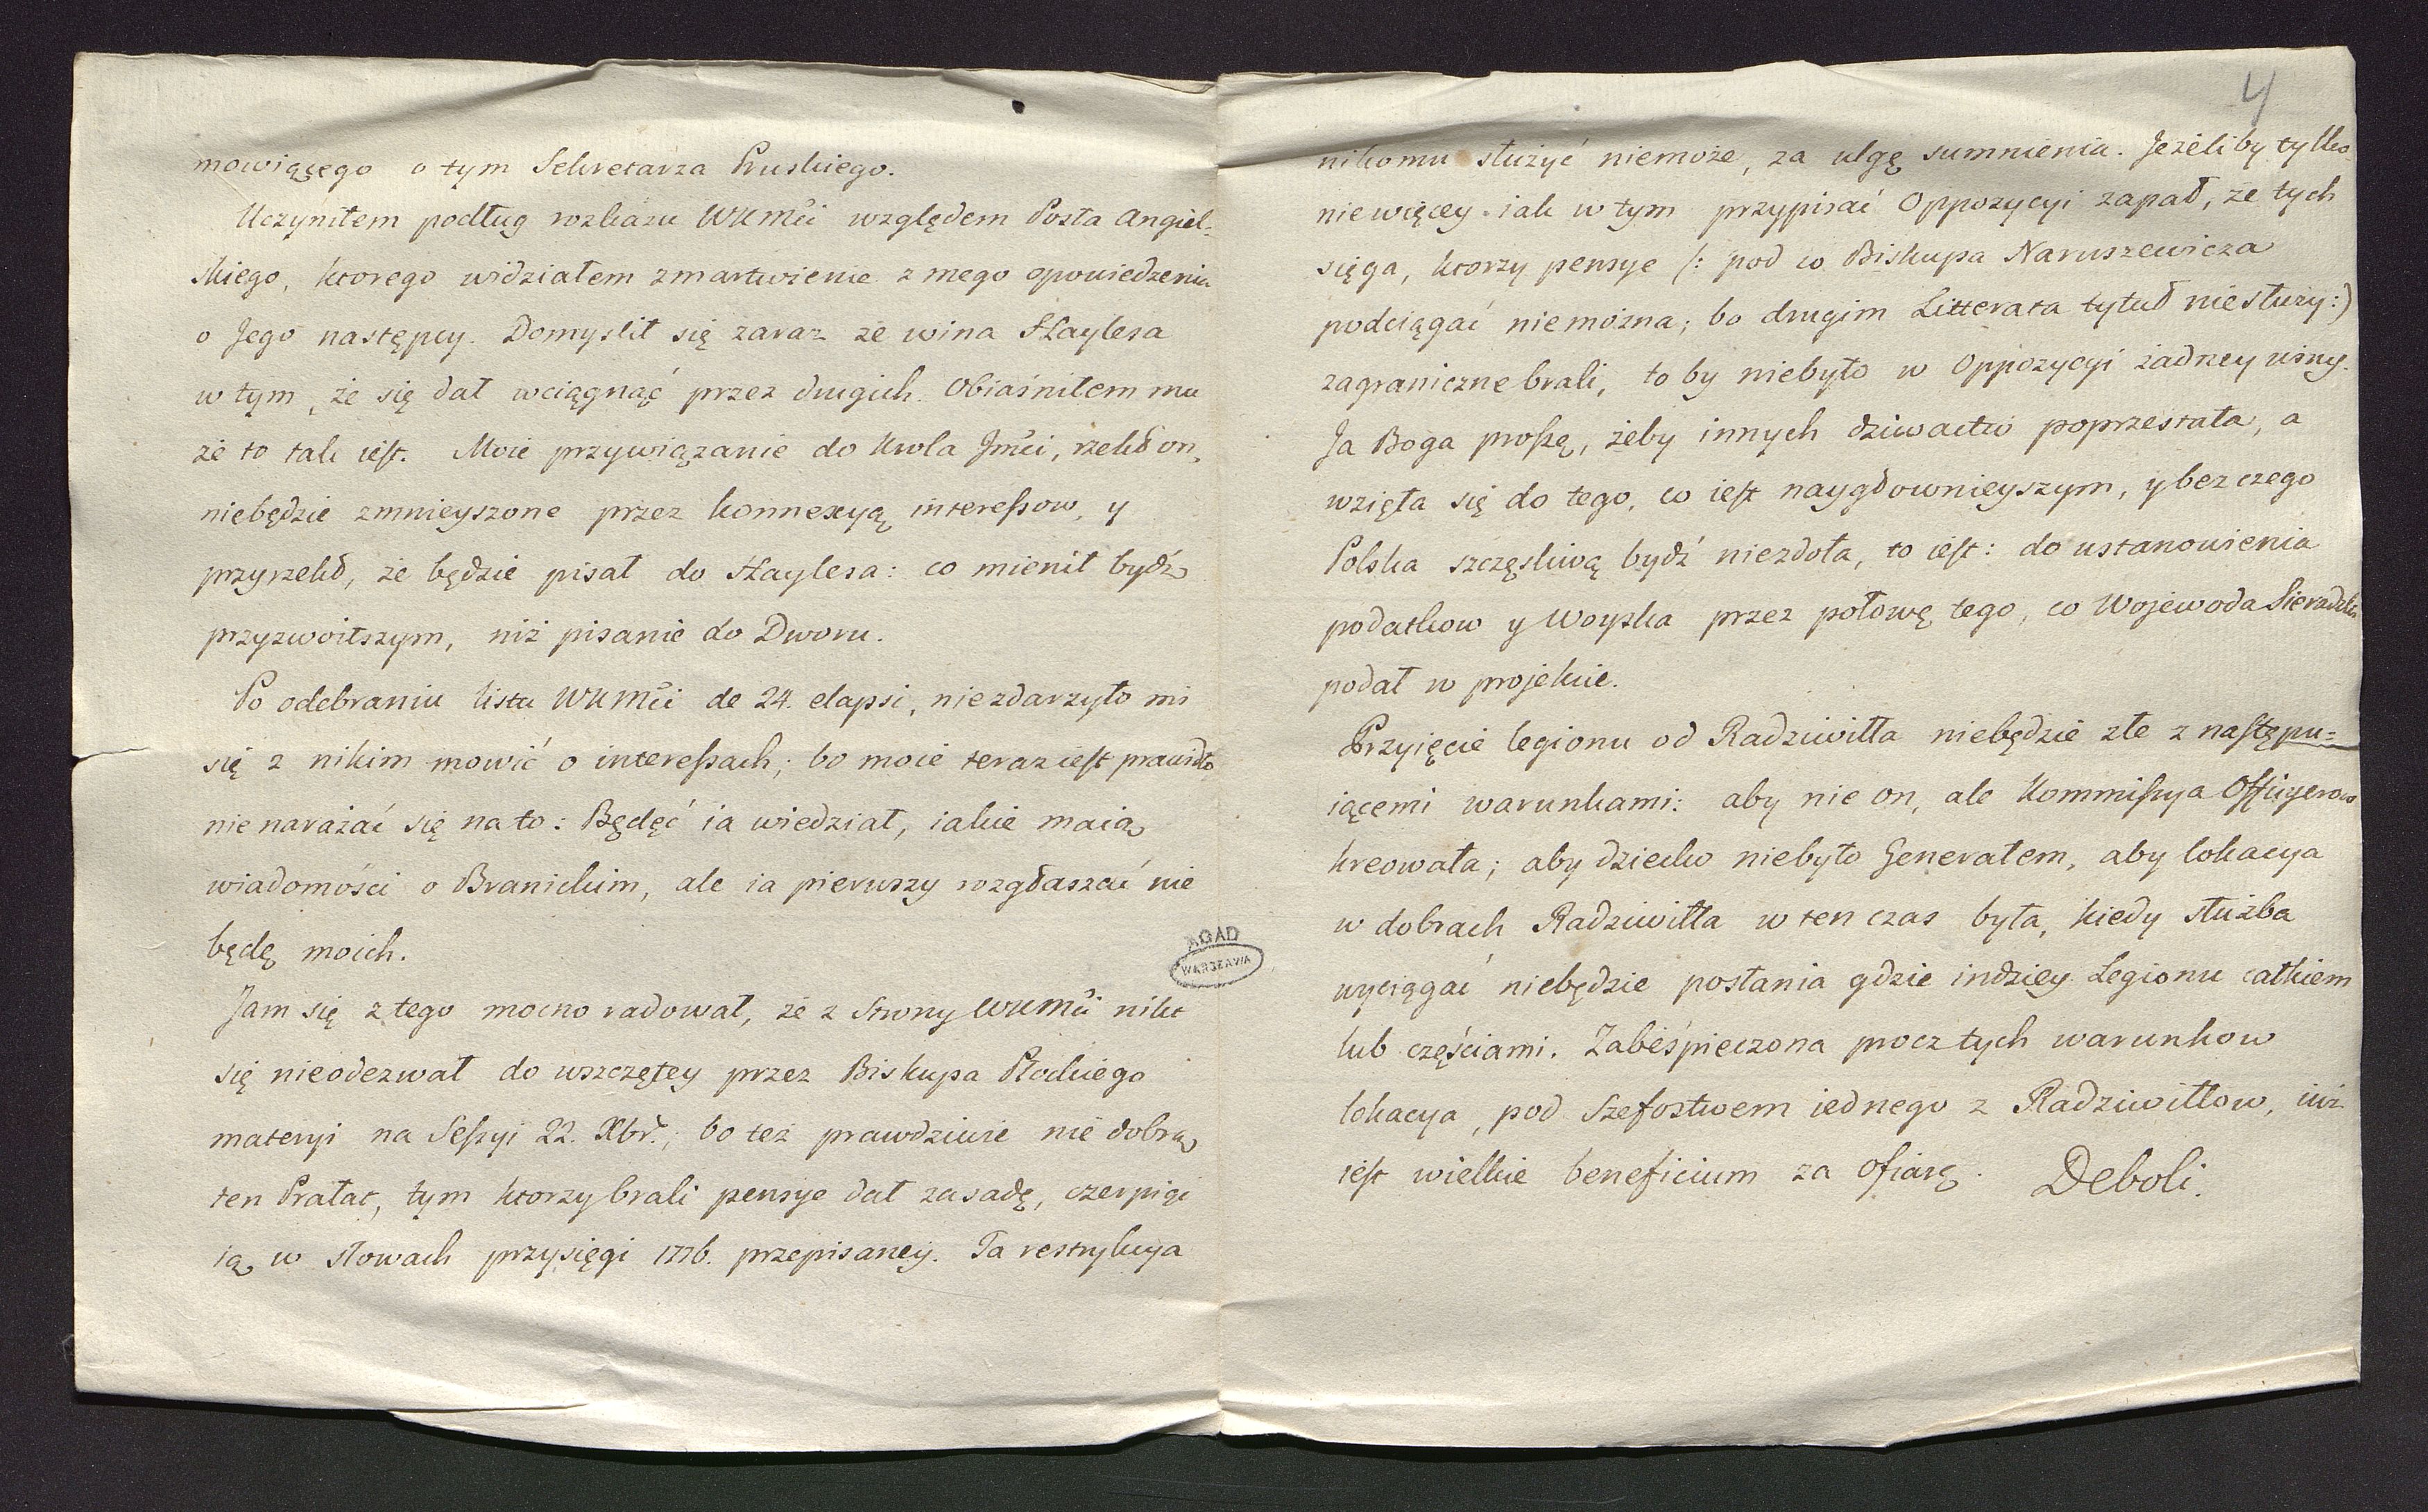 mowiącego o tym Sekretarza Pruskiego.
Uczyniłem podług rozkazu WKMći względem Posła Angiel-
skiego, ktorego widziałem zmartwienie z mego opowiedzenia
o Jego następcy. Domyslił się zaraz że wina Haylesa
w tym, że się dał wciągnąć przez drugich. Obiaśniłem mu
że to tak iest. Moie przywiązanie do Krola Jmći, rzekł on,
niebędzie zmnieyszone przez konnexyą interessow, y
przyrzekł, że będzie pisał do Haylesa: co mienił bydź
przyzwoitszym, niż pisanie do Dworu.
Po odebraniu listu WKMći de 24. elapsi, niezdarzyło mi
się z nikim mowić o interessach; bo moie teraz iest prawidło
nie narażać się na to: Będęć ia wiedział, iakie maią
wiadomości o Branickim, ale ia pierwszy rozgłaszać nie
będę moich.
Jam się z tego mocno radował, że z Strony WKMći nikt
się nieodezwał do wszczętey przez Biskupa Płockiego
materyi na Sessyi 22. Xbr.; bo też prawdziwie nie dobrą
ten Prałat, tym ktorzy brali pensye dał zasadę, czerpiąc
ią w słowach przysięgi 1776. przepisaney. Ta restrykcya
AGAD
WARSZAWA
4
nikomu służyć niemoże, za ulgę sumnienia. Jeżeliby tylko
niewięcey iak w tym przypisać Oppozycyi zapał, że tych
sięga, ktorzy pensye /: pod co Biskupa Naruszewicza
podciągać niemożna; bo drugim Litterata tytuł niesłuży:)
zagraniczne brali, to by niebyło w Oppozycyi żadney winy.
Ja Boga proszę, żeby innych dziwactw poprzestała, a
wzięła się do tego, co iest naygłownieyszym, y bez czego
Polska szczęsliwą bydź niezdoła, to iest: do ustanowienia
podatkow y Woyska przez połowę tego, co Wojewoda Sieradzki
podał w projekcie.
Przyięcie legionu od Radziwiłła niebędzie złe z następu=
iącemi warunkami: aby nie on, ale Kommissya Officyerow
kreowała; aby dziecko niebyło Generałem, aby lokacya
w dobrach Radziwiłła w ten czas była, kiedy służba
wyciągać niebędzie posłania gdzie indziey Legionu całkiem
lub częściami. Zabeśpieczona procz tych warunkow
lokacya, pod Szefostwem iednego z Radziwiłłow, iuż
iest wielkie beneficium za ofiarę. Deboli.